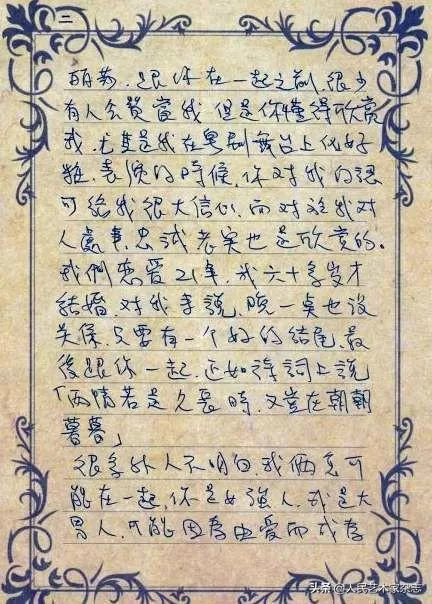 二
丽莎,跟你在一起之前,很少
有人会赞赏我,但是你懂得欣赏
我,尤其是我在粤剧舞台上做好
表演的時候,你对我的認
可给我很大信心,而对於我对
人處事,忠诚老实也是欣赏的。
我們恋爱21年,我六十多岁才
结婚,对我手說,晚一奌也没
关係,只要有一个好的结尾,最
後跟你一起,正如詩詞上說
「兩情若是久長時,又豈在朝朝
暮暮」
很多外人不明白,我倆怎可
能在一起,你是女強人,我是大
男人,可能因為由爱而成為
头条 @人民艺术家杂志